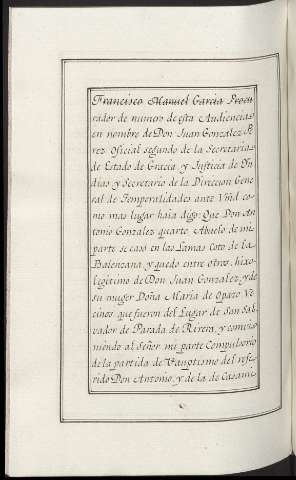 Francisco Manuel Garcia Procu
rador de numero de esta Audiencia
en nombre de Don Juan Gonzalez Pe
rez Oficial segundo de la Secretaria
de Estado de Gracia y Justicia de In
dias y Secretario de la Direccion Gene
ral de Temporalidades ante Vmd co
mo mas lugar haia digo: Que Don An
tonio Gonzalez quarto Abuelo de mi
parte se caso en las Lamas Coto de la
Baienzana y quedo entre otros, hixo
legitimo de Don Juan Gonzalez y de
su muger Doña Maria de Opazo Ve
cinos que fueron del Lugar de San Sal
vador de Parada de Rivera, y como
niendo al Señor mi parte Compulsorio
de la partida de Vauptismo del refe
rido Don Antonio, y de la de Casami